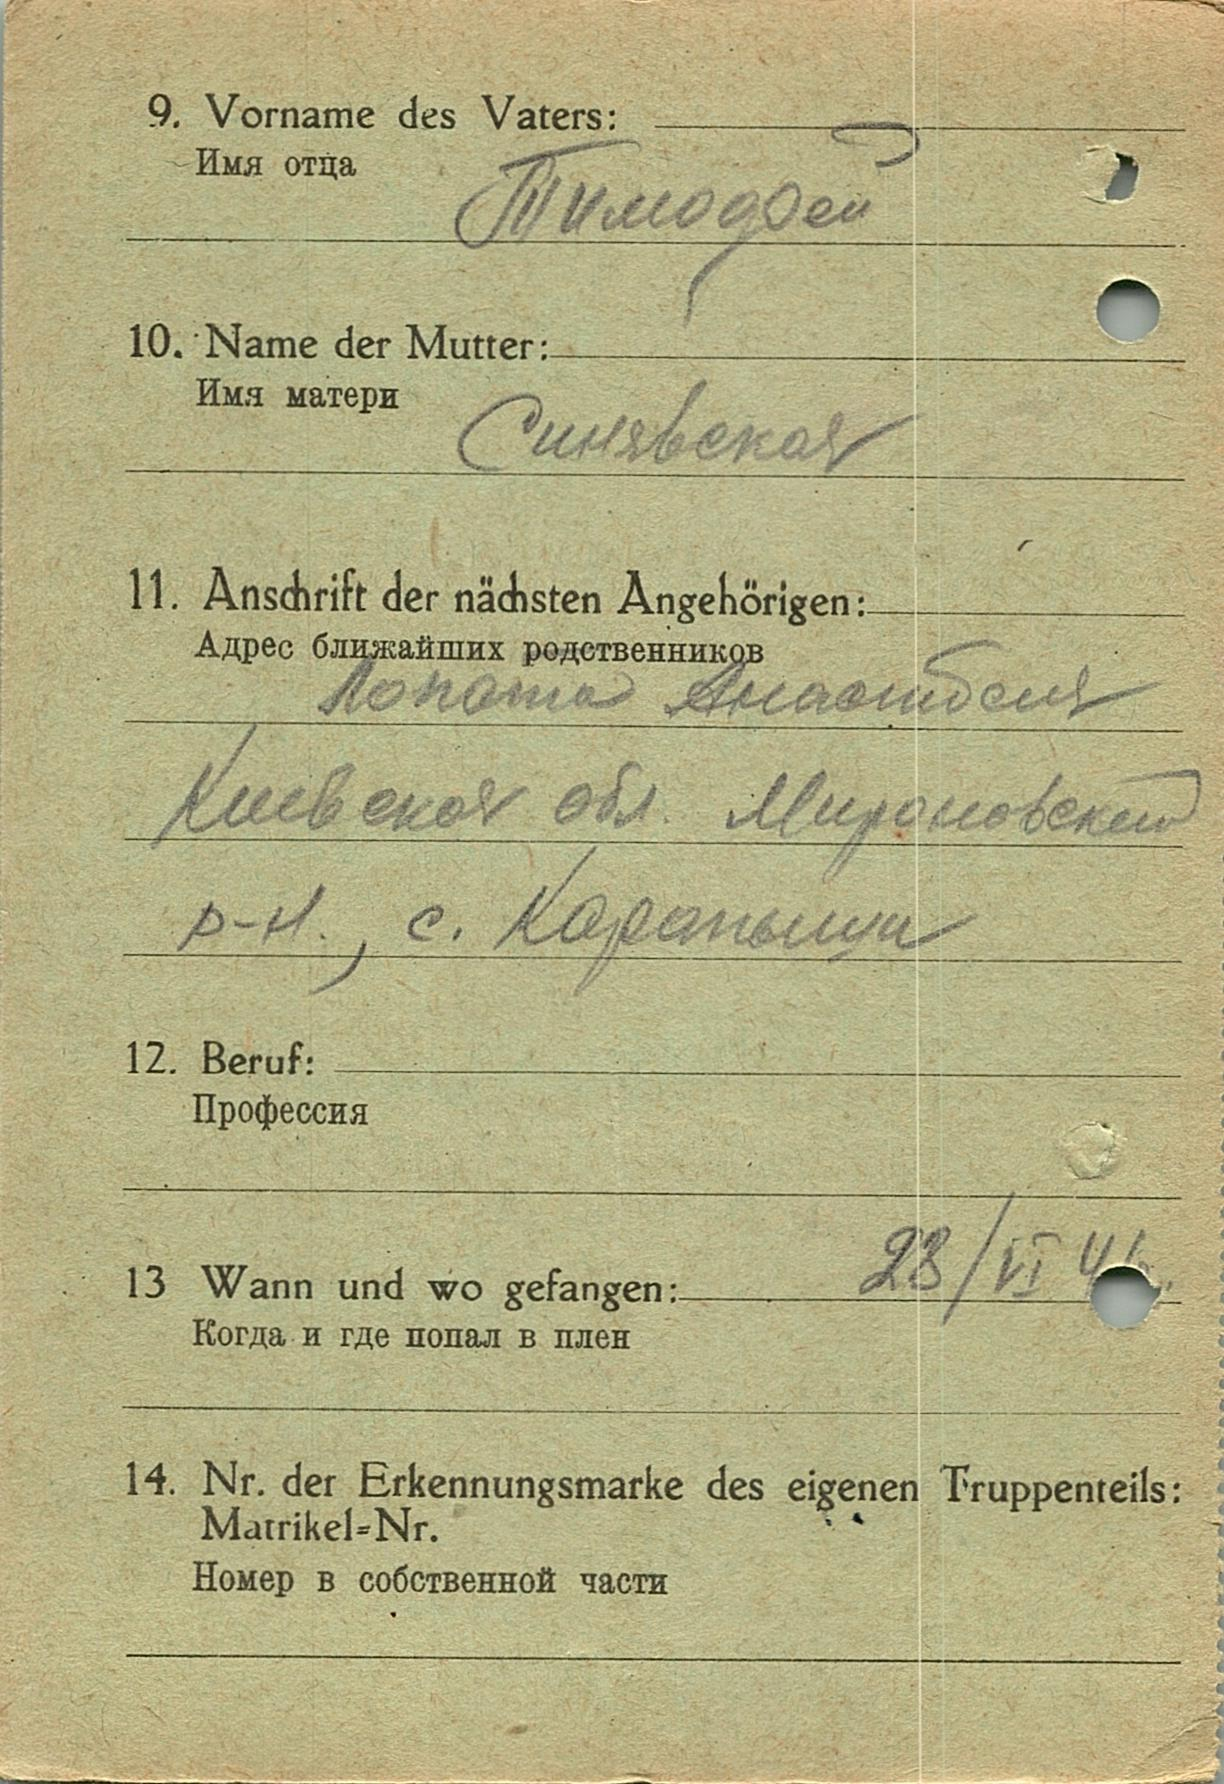 9. Vorname des Vaters:
Имя отца
Тимофей
10. Name der Mutter:
Имя матери
Синявская
11. Anschrift der nächsten Angehörigen:
Адрес ближайших родственников
Лопата Анастасия
Киевская обл. Мироновский
р-н., с. Карапыши
12. Beruf:
Профессия
13 Wann und wo gefangen:
23/VI 4
Когда и где попал в плен
14. Nr. der Erkennungsmarke des eigenen Truppenteils:
Matrikel=Nr.
Номер в собственной части